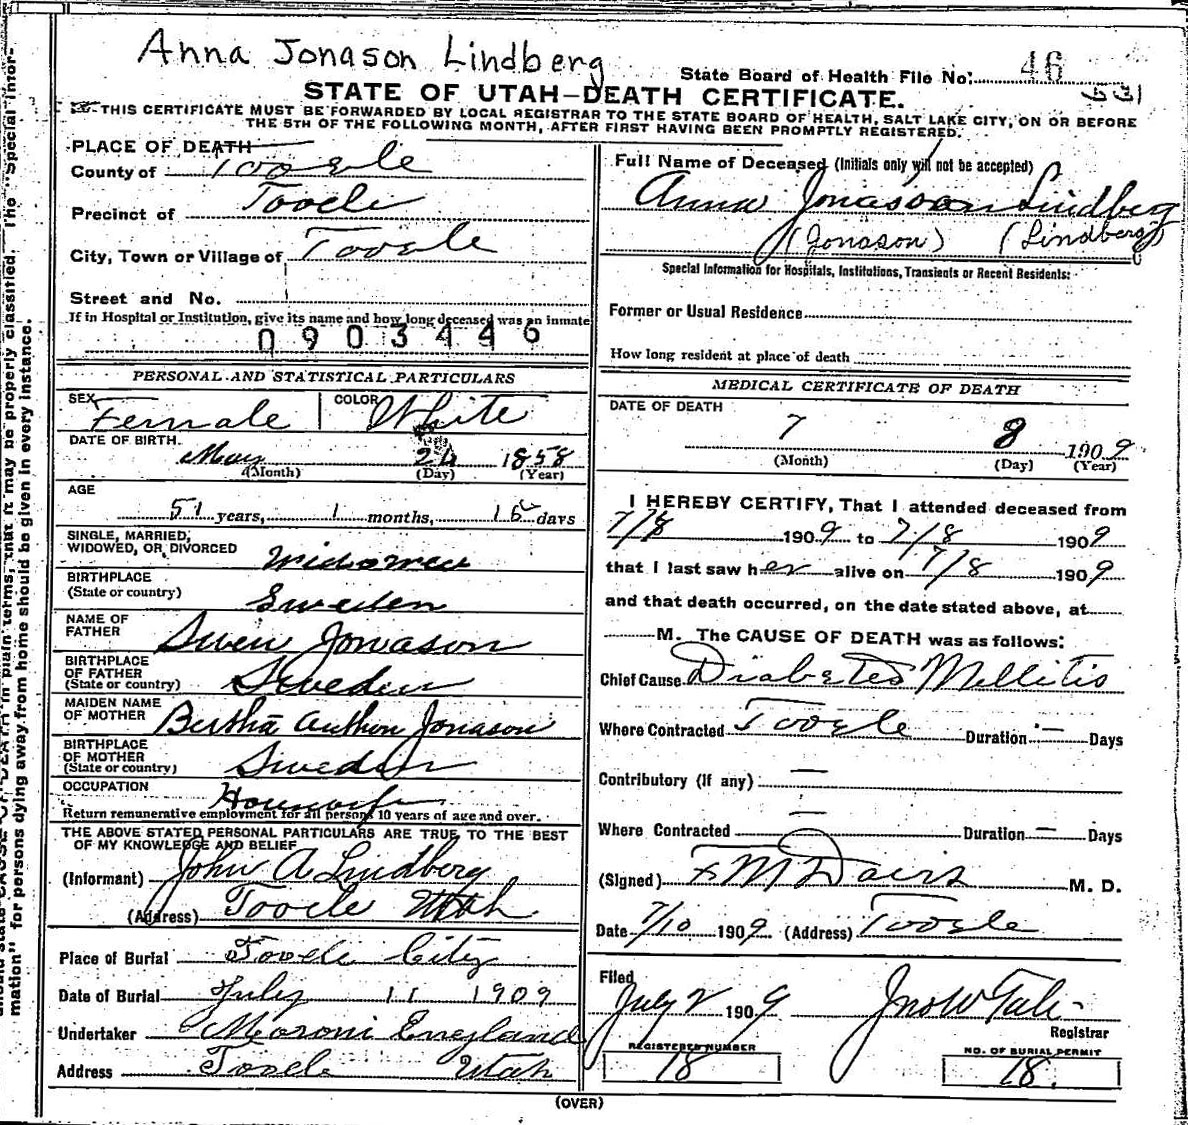 Anna Jonason Lindberg
State Board of Health File No. 46
531
STATE OF UTAH—DEATH CERTIFICATE.
THIS CERTIFICATE MUST BE FORWARDED BY LOCAL REGISTRAR TO THE STATE BOARD OF HEALTH, SALT LAKE CITY, ON OR BEFORE
THE 5TH OF THE FOLLOWING MONTH, AFTER FIRST HAVING BEEN PROMPTLY REGISTERED.
PLACE OF DEATH
County of Tooele
Precinct of Tooele
City, Town or Village of Tooele
Street and No.
If in Hospital or Institution, give its name and how long deceased was an inmate
0903446
PERSONAL AND STATISTICAL PARTICULARS
SEX Female COLOR White
DATE OF BIRTH. May 24 1858
(Month) (Day) (Year)
AGE
51 years, 1 months, 15 days
SINGLE, MARRIED,
WIDOWED, OR DIVORCED Widowed
BIRTHPLACE
(State or country) Sweden
NAME OF
FATHER Swen Jonason
BIRTHPLACE
OF FATHER
(State or country) Sweden
MAIDEN NAME
OF MOTHER Bertha Jonason
BIRTHPLACE
OF MOTHER
(State or country) Sweden
OCCUPATION Housewife
Return remunerative employment for all persons 10 years of age and over.
THE ABOVE STATED PERSONAL PARTICULARS ARE TRUE TO THE BEST
OF MY KNOWLEDGE AND BELIEF
(Informant) John A Lindberg
(Address) Tooele Utah
Place of Burial Tooele City
Date of Burial July 11 1909
Undertaker Moroni England
Address Tooele Utah
Full Name of Deceased (Initials only will not be accepted)
Anna Jonason Lindberg
(Jonason) (Lindberg)
Special Information for Hospitals, Institutions, Transients or Recent Residents:
Former or Usual Residence
How long resident at place of death
MEDICAL CERTIFICATE OF DEATH
DATE OF DEATH
7 8 1909
(Month) (Day) (Year)
I HEREBY CERTIFY, That I attended deceased from
7/8 1909 to 7/8 1909
that I last saw her alive on 7/8 1909
and that death occurred, on the date stated above, at
M. The CAUSE OF DEATH was as follows:
Chief Cause Diabetes Mellitis
Where Contracted Tooele Duration — Days
Contributory (if any) —
Where Contracted — Duration — Days
(Signed) F M Davis M. D.
Date 7/10 1909 (Address) Tooele
Filed
July 2 1909 Jno W Tate
Registrar
REGISTERED NUMBER
18
NO. OF BURIAL PERMIT
18.
(OVER)
in plain terms, that it may be properly classified. The "Special Infor-
mation" for persons dying away from home should be given in every instance.